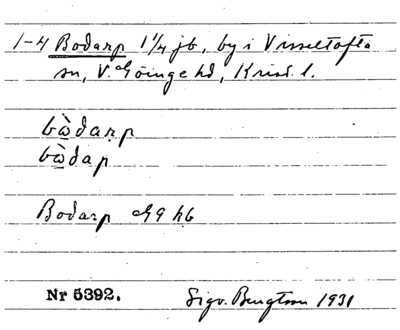 1-4 Bodarp 1 1/4 jb, by i Visseltofta
sn, V. Göinge hd, Krist. l.
bòdarp
bòdap
Bodarp GG hb
Nr 5392. Sigv. Bengtson 1931